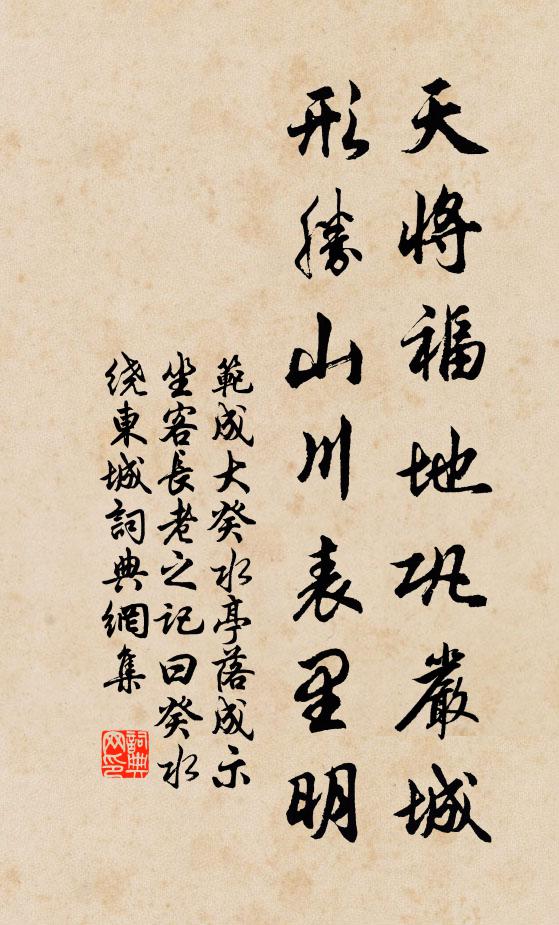 天將福地巩嚴城
形勝山川表里明
範成大癸水亭落成示
坐客長老之记曰癸水
绕東城詞典網集
詞典網印